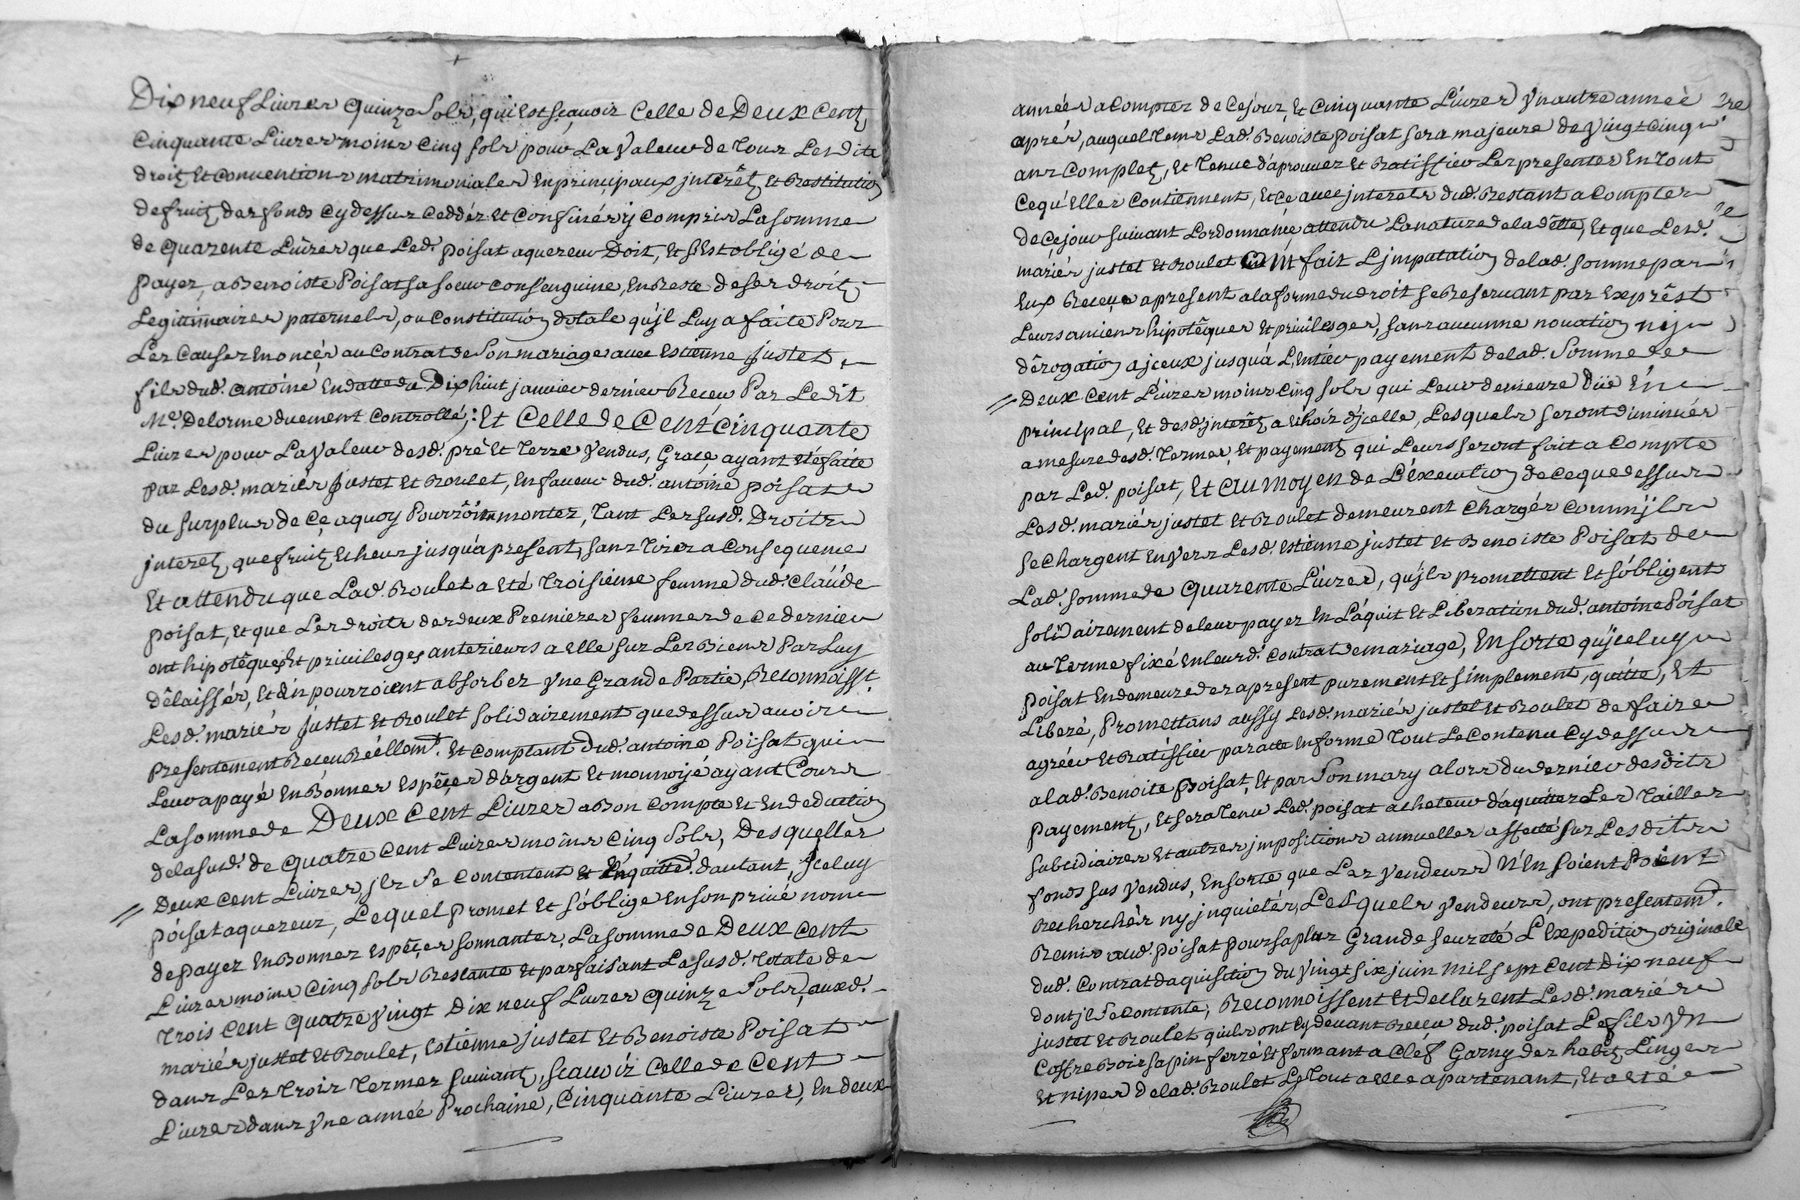 Dix neuf Livres quinze sols, qui est sçavoir celle de Deux cent
cinquante Livres moins cinq sols pour La valeur de tous Lesdits
droits et conventions matrimoniales en principaux jnterêts et Restitution
de fruits des fonds cy dessus ceddéz et confinés y compris La somme
de quarente Livres que Led. poisat aquereur Doit, et s'Est obligé de
payer, a Benoiste Poisat sa soeur consenguine, en Reste de ses droits
Legitimaires paternels, ou constitution dotale qu'jl Luy a faite Pour
Les causes enoncés au contrat de son mariage avec estienne justet
fils dud. antoine en datte du Dix huit janvier dernier Receu Par Ledit
Me. Delorme duement controllé; Et Celle de Cent cinquante
Livres pour La valeur desd. pré et Terre vendus, Grace ayant eté faite
par Lesd. mariés justet et Roulet, en faveur dud. antoine poisat
du surplus de ce aquoy Pourroint monter, tant Les susd. Droits
jnterets que fruits echeus jusqu'a present, sans tirer a consequence
Et attendu que Lad. Roulet a eté troisieme femme dud. claude
poisat, et que Les droits des deux Premieres femmes de ce dernier
ont hipotêques et privileges anterieurs a elle sur Les Biens Par Luy
délaissés, et en pourroient absorber yne Grande Partie, Reconnoisst.
Lesd. mariés justet et Roulet solidairement que dessus avoir
presentement Receu Réellemt. et comptant dud. antoine Poisat qui
Leur a payé en Bonnes Espêces d'argent et monnoyé ayant Cours
La somme de Deux Cent Livres a Bon compte et en deduction
de la susd. de quatre cent Livres moins cinq sols, Desquelles
Deux cent Livres jls se contentent et en quitte. dautant, jceluy
poisat aquereur, Lequel promet et s'oblige en son privé nom
de payer en Bonnes Espêces sonnantes La somme de Deux cent
Livres moins cinq sols Restante et parfaisant La susd. totale de
trois cent quatre vingt Dix neuf Livres quinze sols, auxd.
mariés justet et Roulet, estienne justet et Benoiste Poisat
dans Les trois termes suivants, scavoir Celle de Cent
Livres dans yne année Prochaine, Cinquante Livres, en deux
années a compter de cejour, et cinquante Livres yn autre année
aprés, auquel tems Lad. Benoiste poisat sera majeure de vingt cinq
ans complets, et tenue d'aprouver et Ratiffier Les presentes en tout
ce qu'Elles contiennent, et ce avec jnterets dud. Restant a compter
de ce jour suivant L'ordonnance, attendu La nature de la dette, et que Lesd.
mariés justet et Roulet ont fait L'jmputation de lad. somme par
Eux Receue a present a la forme du droit se Reservant par Exprêst
Leurs anciens hipotêques et privileges, sans aucunne novation nij
dérogation a jceux jusqu'à L'entier payement de lad. somme de
Deux cent Livres moins cinq sols qui Leur demeure düe En
principal, et desd. jnterêts a echoir d'jcelle, Lesquels seront diminués
a mesure desd. termes et payements qui Leurs seront fait a compte
par Led. poisat, Et au moyen de L'éxecution de ce que dessus
Lesd. mariés justet et Roulet demeurent chargés comm'jls
se chargent envers Lesd. estienne justet et Benoiste Poisat de
Lad. somme de quarente Livres, qu'jls promettent et s'obligent
solidairement de leur payer en L'aquit et Liberation dud. antoine Poisat
au terme fixé en leurd. contrat de mariage, En sorte qu'jceluy
poisat en demeure des a present purement et simplement, quitte, et
Liberé, Promettans aussy Lesd. mariés justet et Roulet de faire
agréer et Ratiffier par acte en forme tout Le contenu cy dessus
a lad. Benoite poisat, et par son mary alors du dernier desdits
payements, et sera tenu Led. poisat acheteur d'aquitter Les tailles
subcidiaires et autres jmpositions annuelles affecté sur Lesdits
fonds sus vendus, en sorte que Les vendeurs N'en soient Point
Recherchés ny jnquietés, Lesquels vendeurs, ont presentemt.
Remis aud. poisat pour sa plus Grande seureté L'expedition originale
dud. contrat d'aquisition du vingt six juin mil sept cent dix neuf
dont jl se contente, Reconnoissent et declarent Lesd. mariés
justet et Roulet qu'ils ont cy devant Receu dud. poisat Le fils yn
coffre Bois sapin ferré et fermant a cléf Garny des habits Linges
et nipes de lad. Roulet Le tout a elle apartenant, et a eté